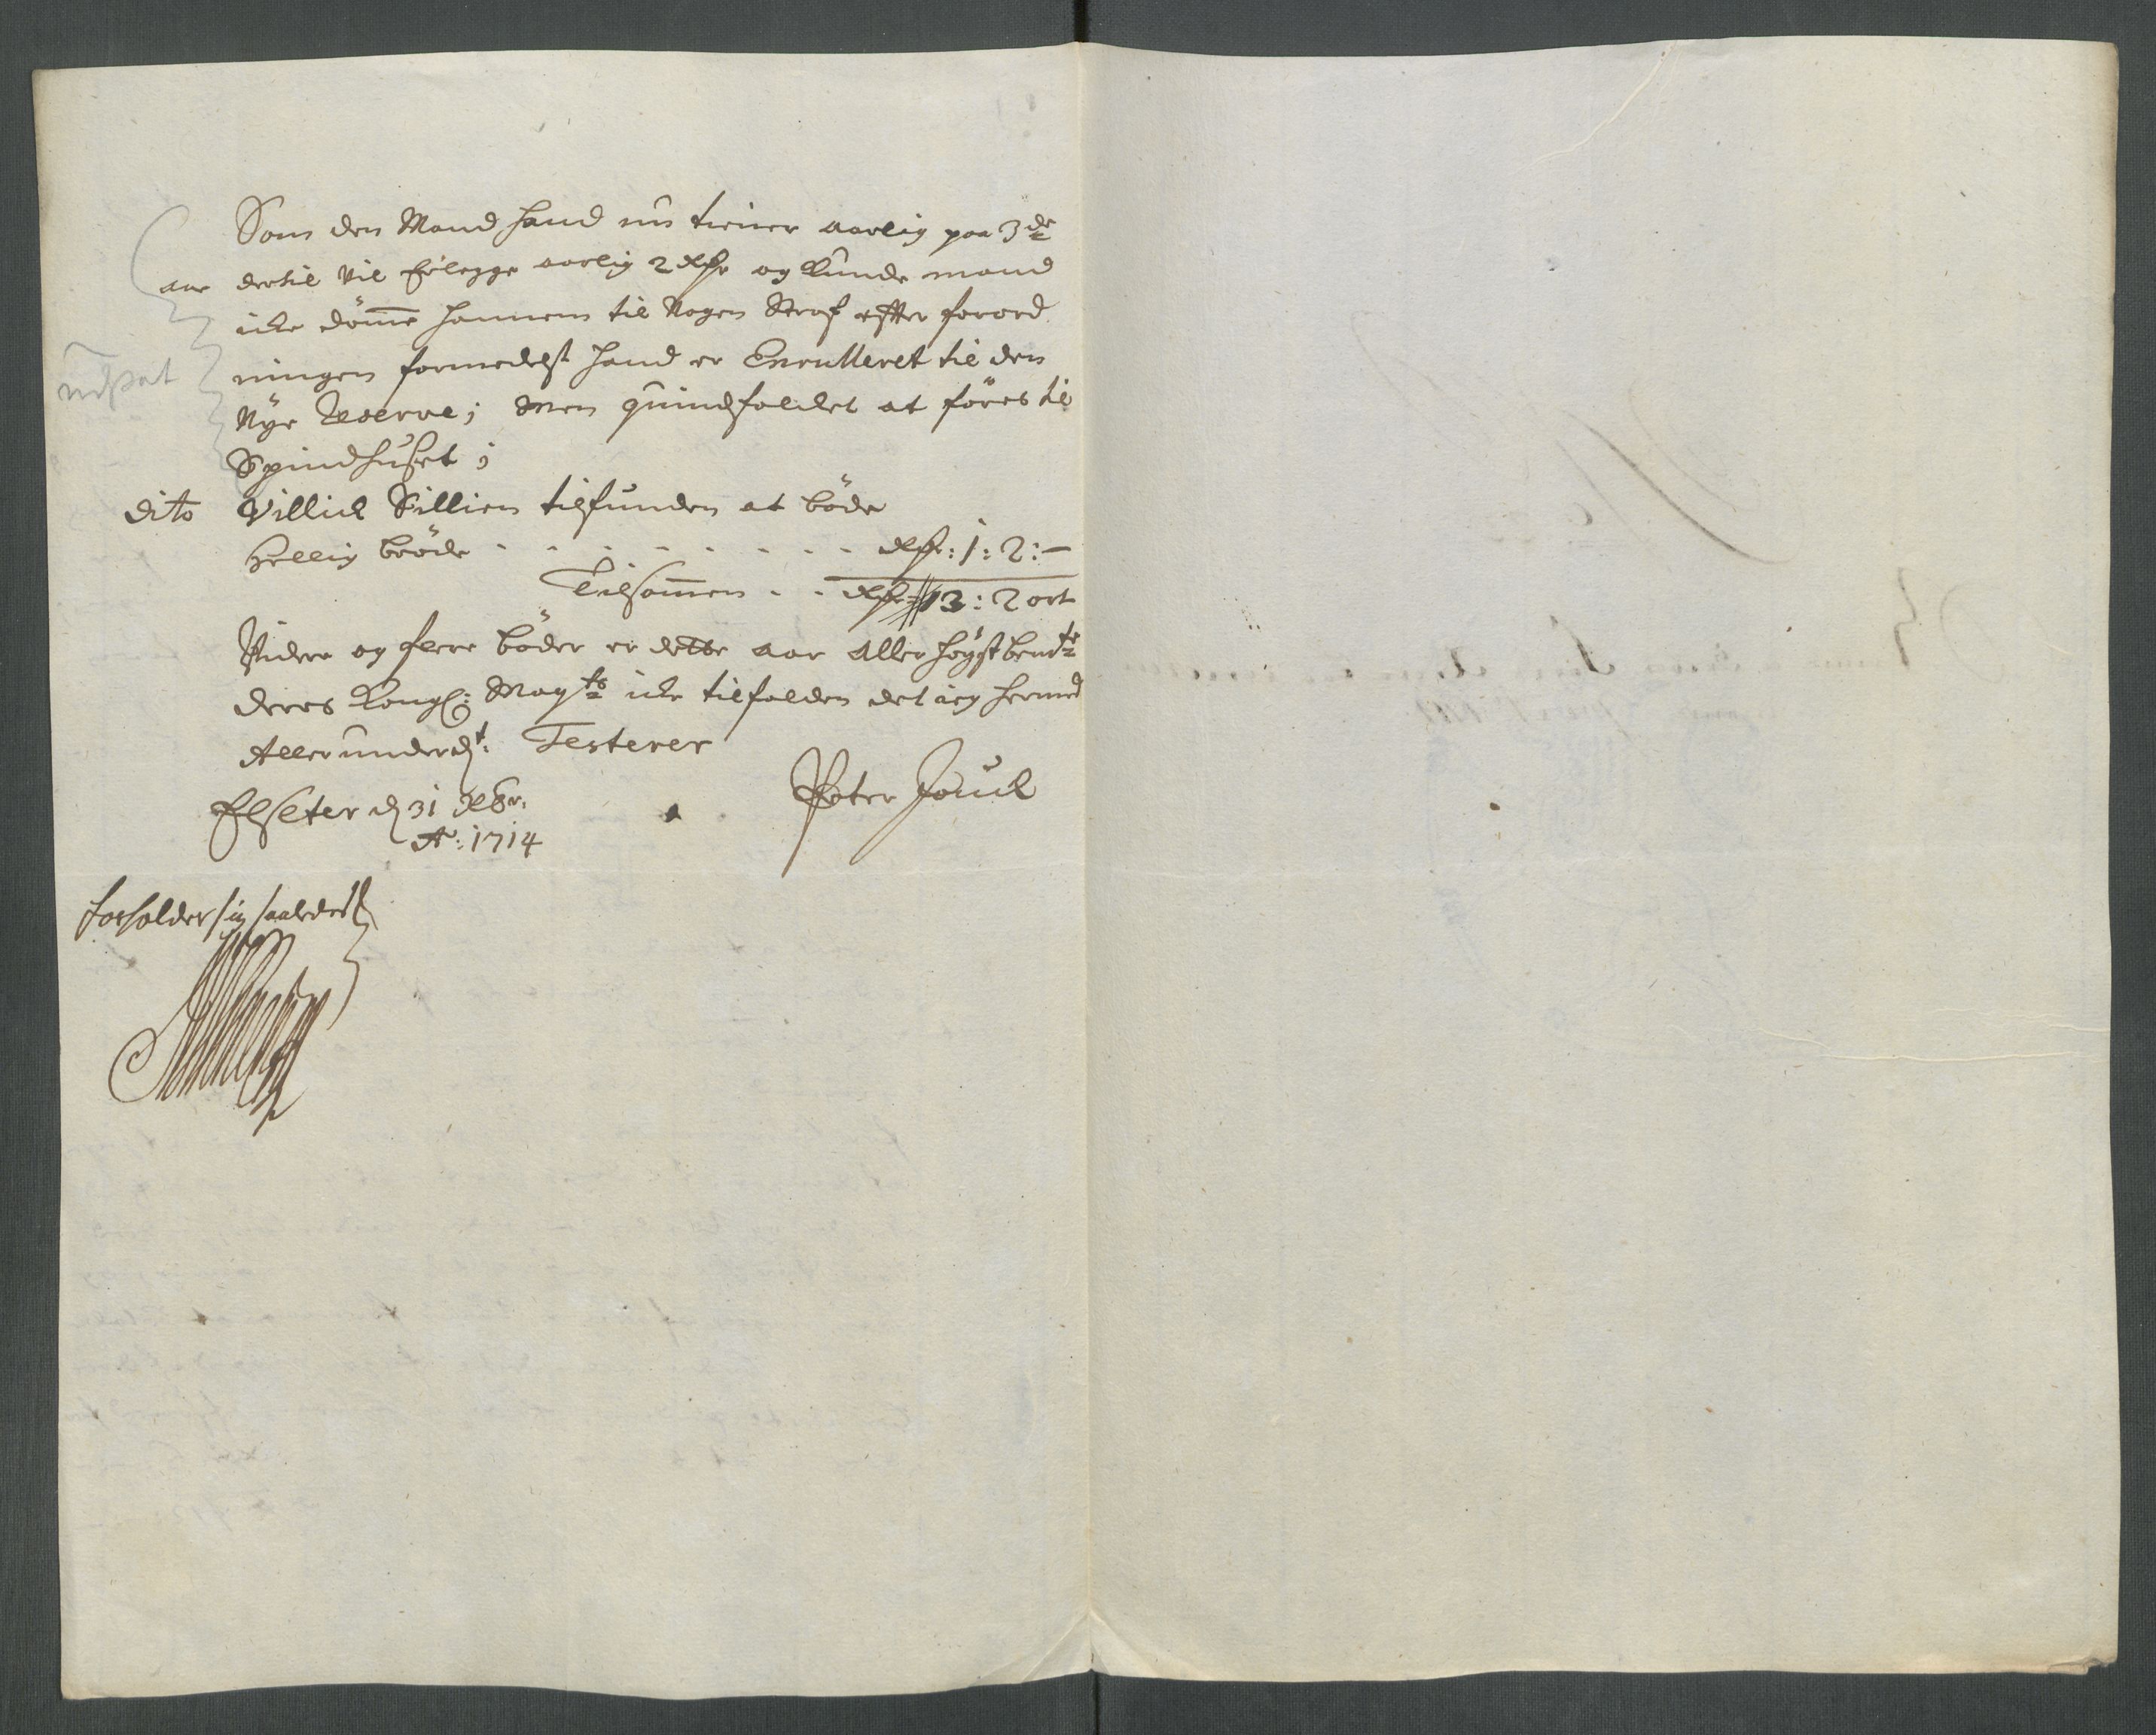 Som den Mand hand nu tiener aarlig paa 3de
aar dertil vil Erlegge aarlig 2 Rdr og kunde mand
icke dömme hannem til Nogen Straf efter forord
ningen formedelst hand er Enrulleret til den
Nye Reserve; Men quindfolcket at föres til
Spindhuset;
dito Villich Sillien tilfunden at böde
Hellig bröde - - - - - - - - Rdr: 1: 2: -
Tilsammen - - Rdr 13: 2 ort
Videre og flere böder er dette aar Aller höyst bemte
deres Kongl: Mayts icke tilfalden det ieg hermed
Allerunderdt: Testerer
Elseter d 31 Xbr:
Ao: 1714
Peter Juul
forholder sig saaledes